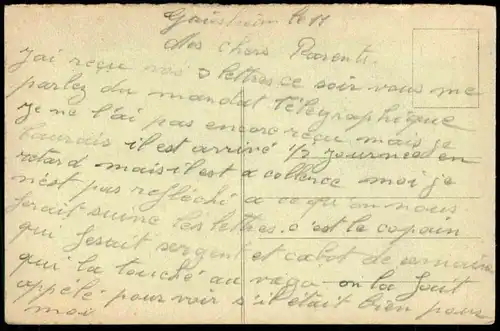 Gausheim le 11
Mes chers Parents.
J'ai reçue vos 2 lettres ce soir vous me
parlez du mandat télégraphique
je ne l'ai pas encore reçu mais je
il est arrivé 1/2 journée en
retard mais il est a moi je
n'est pas refléchi a ce qu'on nous
ferait suivre les lettres. c'est le copain
qui ferait sergent et cabot de semaine
qui la touché au vago on la fait
appélé pour voir s'il était bien pour
moi